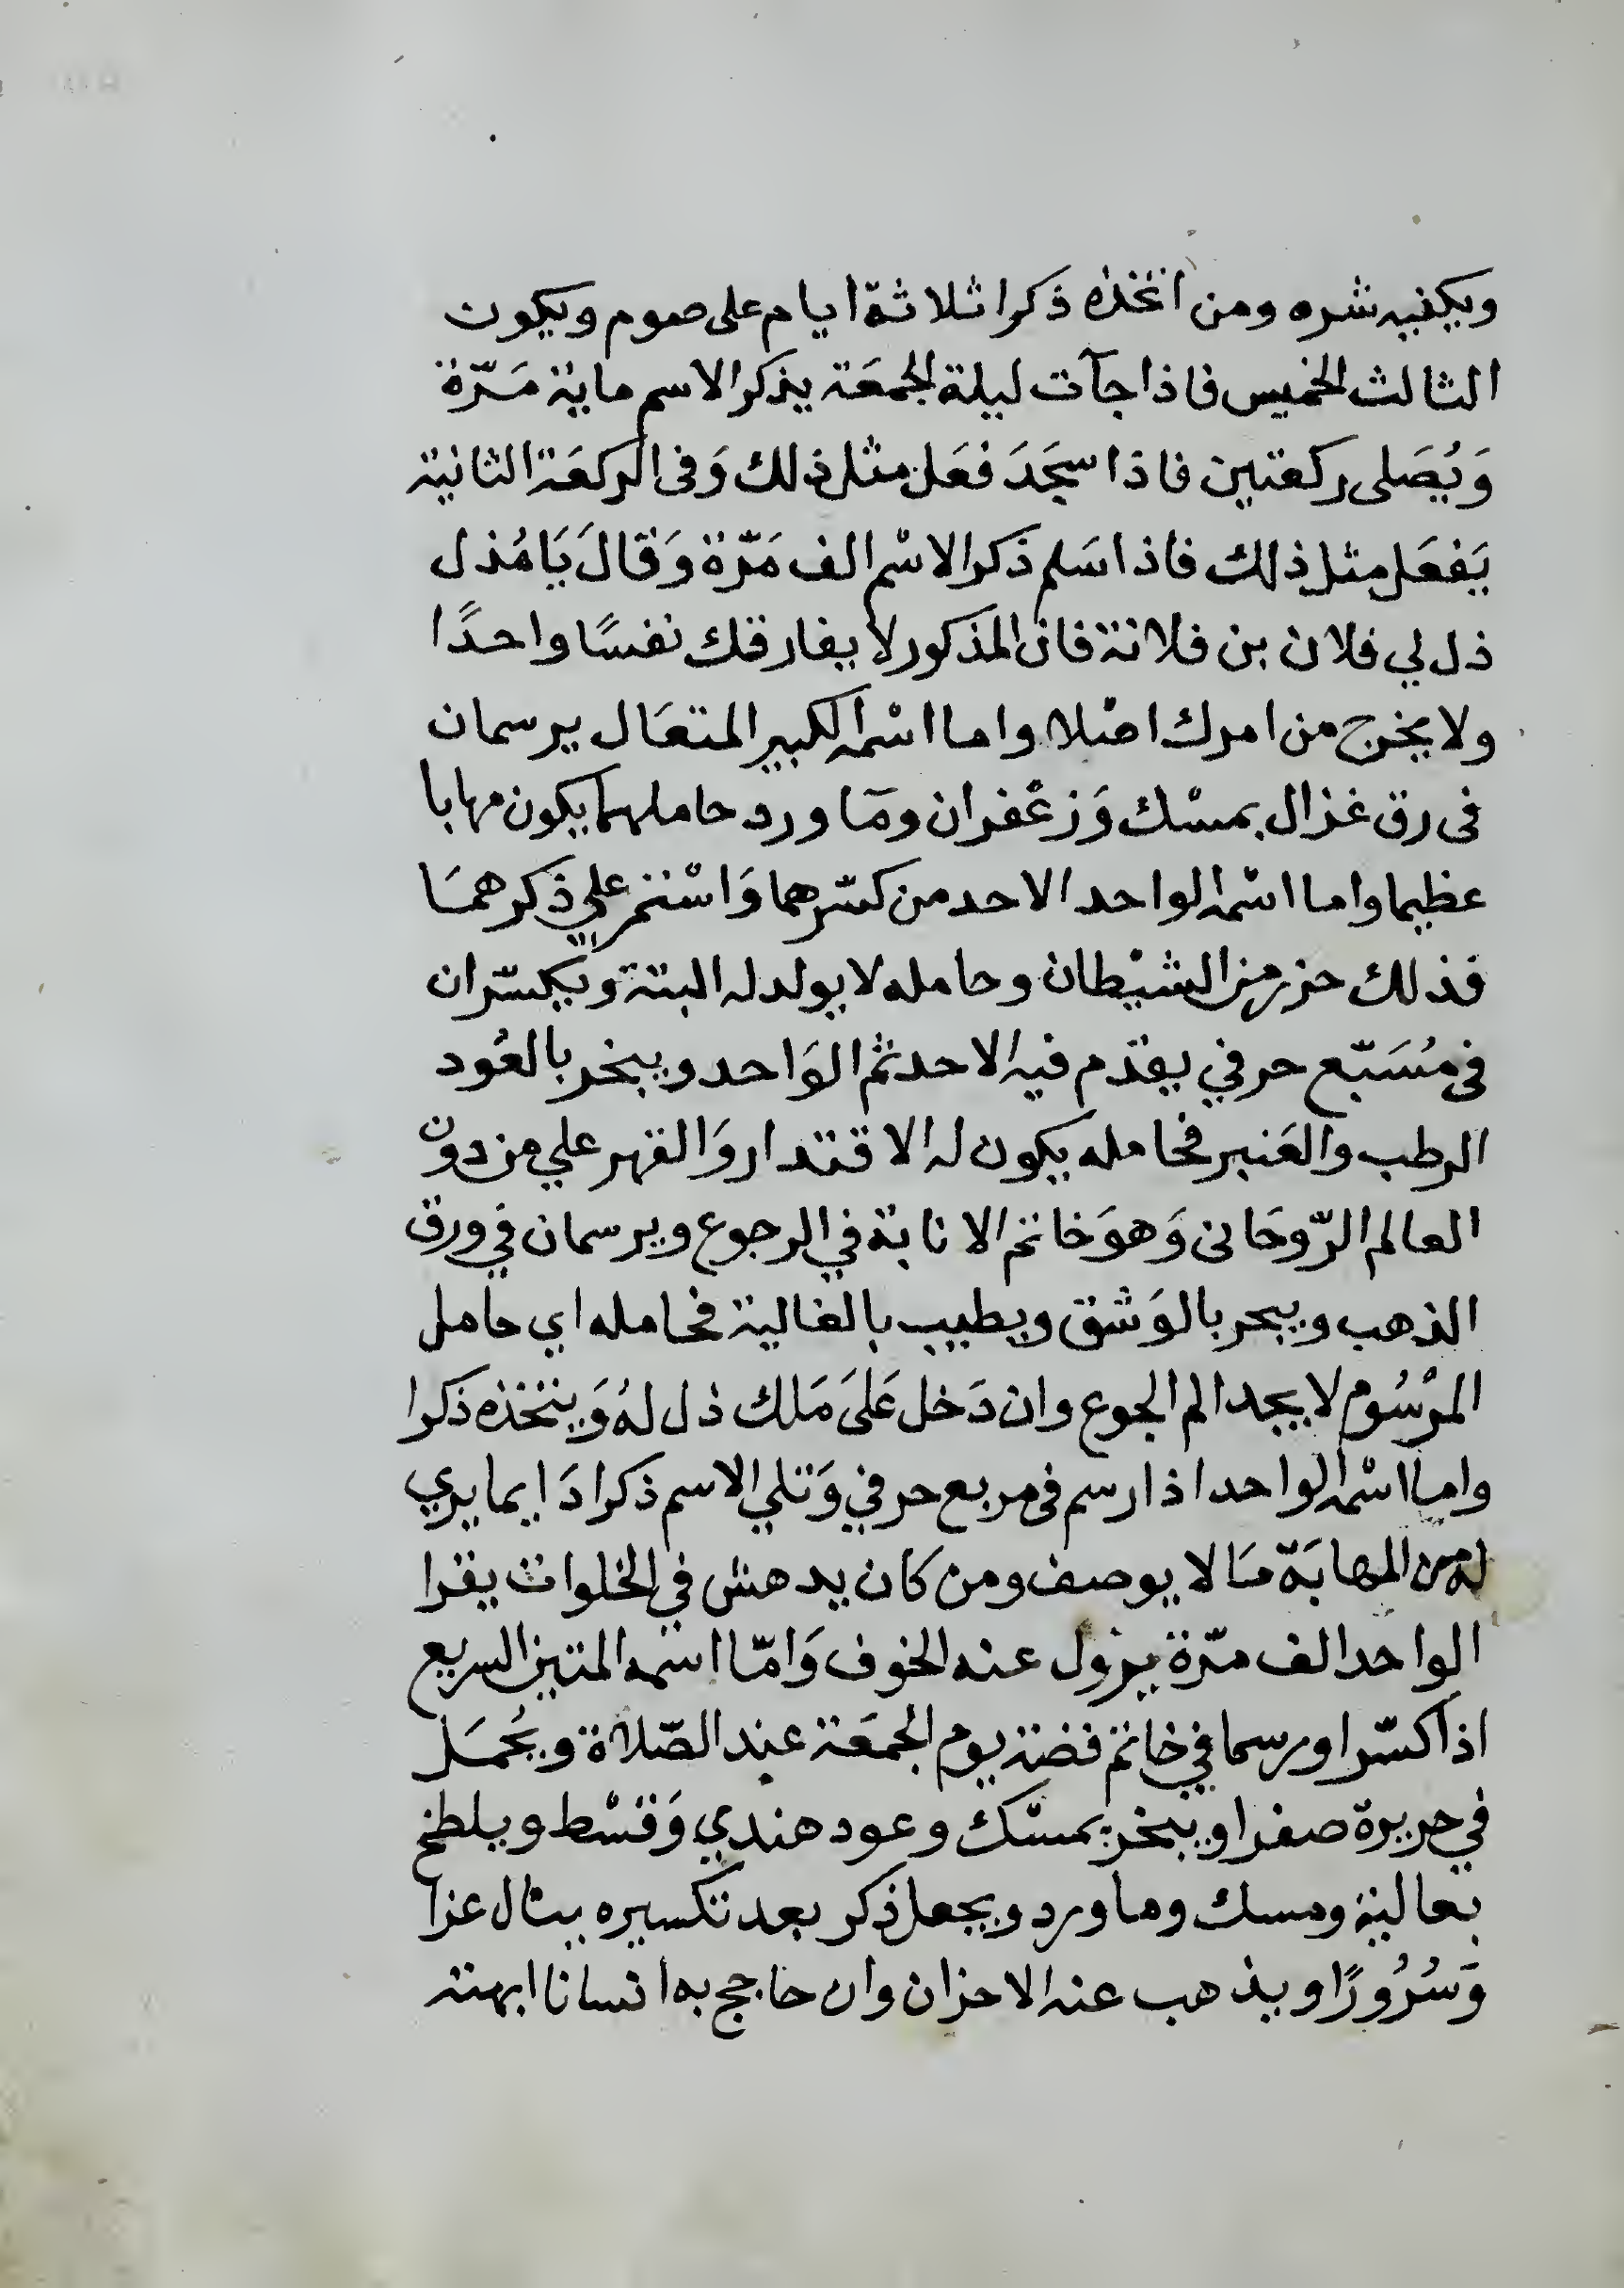 ويكفيه شره ومن اتخذه ذكرا ثلاثة ايام على صوم ويكون
الثالث الخميس فاذا جآت ليلة الجمعَة يذكر الاسم ماية مَرّة
وَيُصَلى ركعتين فاذا سجَدَ فعَل مثل ذلك وَفى الركعَة الثانية
يَفعَل مثل ذلك فاذا سَلم ذكر الاسْم الف مَرّة وَقالَ يَا مُذل
ذل لي فلان بن فلانة فان المذكور لا يفارقك نفسًا واحدًا
ولا يخرج من امرك اصْلا واما اسْمه الكبير المتعَال يرسمان
فى رق غزال بمسْك وَزعْفران ومَا ورد حاملهما يكون مهابا
عظيما واما اسْمه الواحد الاحد من كسّرهما وَاسْتمر علي ذكرهمَا
فذلك حزر من الشيْطان وحامله لا يولد له البتة ويكسّران
فى مُسَبّع حرفي يقدم فيه الاحد ثم الوَاحد ويبخر بالعُود
الرطب والعَنبر فحامله يكون له الاقتدار وَالقهر علي من دون
العالم الرّوحَانى وَهوَ خاتم الانابة في الرجوع ويرسمان في ورق
الذهب ويبخر بالوَشق ويطيب بالغالية فحامله اي حامل
المرْسُوم لا يجد الم الجوع وان دَخل عَلىَ مَلك ذل لهُ وَيتخذه ذكرا
واما اسْمه الواحد اذا رسم فى مربع حرفي وَتلي الاسم ذكرا دَايما يري
له من المهابَة مَا لا يوصف ومن كان يدهش في الخلوات يقرا
الواحد الف مرّة يزول عنه الخوف وَامّا اسمه المتين السريع
اذا كسّرا ورسما في خاتم فضة يوم الجمعَة عند الصّلاة ويُحمَل
في حريرة صفرا ويبخر بمسْك وعود هندي وَقسْط ويلطخ
بغالية ومسك وما ورد ويجعل ذكر بعد تكسيره ينال عزا
وَسُرُورًا ويذهب عنه الاحزان وان حاجج به انسانا ابهته